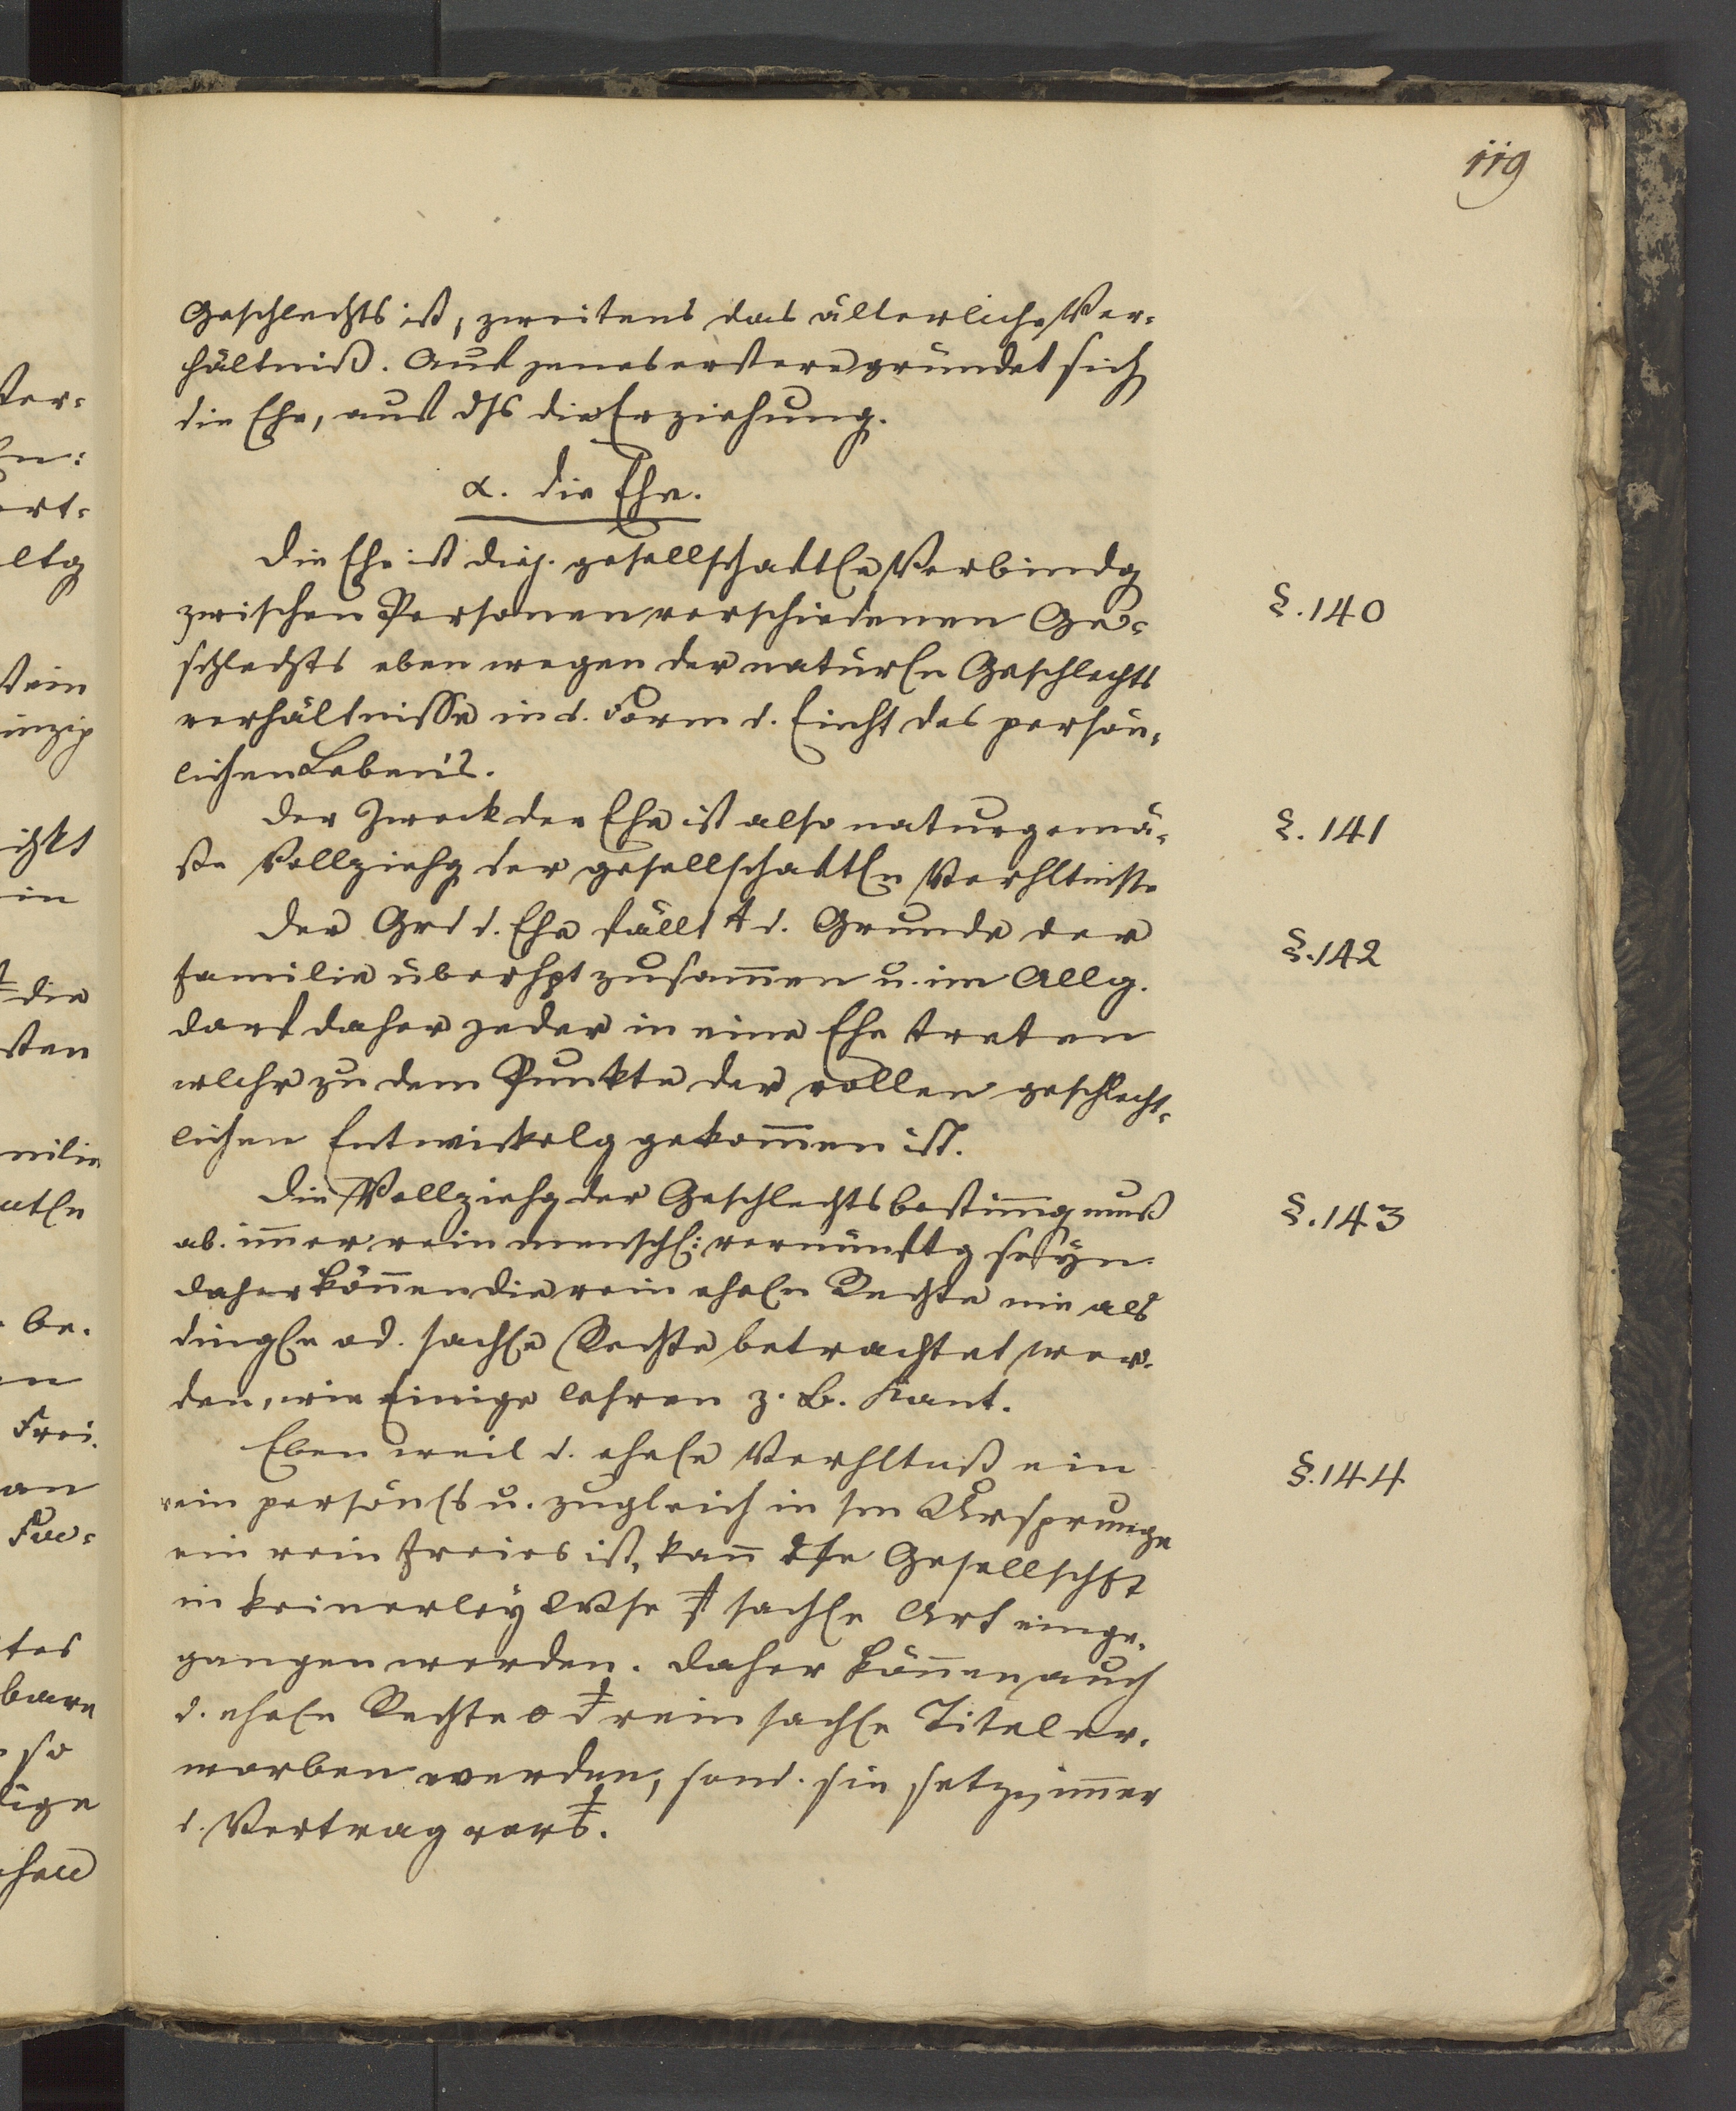 119
Geschlechts ist, zweitens das älterliche Ver-
hältniß. Auf jenes erstere gründet sich
die Ehe, auf dss die Erziehung.
α. die Ehe.
Die Ehe ist diej. gesellschaftle Verbindg
zwischen Personen verschiedenen Ge-
schlechts eben wegen der naturln Geschlechts
verhältnisse in d. Form d. Einht des persön-
lichen Lebens.
§. 140
Der Zweck der Ehe ist also naturgemä-
ße Vollziehg der gesellschaftln Verhltnisse
§. 141
Der Grd d. Ehe fällt d. Grunde der
Familie überhpt zusam̄en u. im Allg.
darf daher jeder in eine Ehe treten
wlchr zu dem Punkte der vollen geschlecht-
lichen Entwickelg gekom̄en ist.
§. 142
Die Vollziehg der Geschlechtsbestim̄g muß
ab. im̄er rein menschl: vernünftg seyn.
daher kön̄en die rein eheln Rechte nie als
dingle od. sachle Rechte betrachtet wer-
den, wie Einige lehren z. B. Kant.
§. 143
Eben weil d. ehele Verhltniß ein
rein persönls u. zugleich in sm Ursprunge
ein rein freies ist, kan̄ dse Gesellschft
in keinerley Wse sachle Art einge-
gangen werden. Daher kön̄en auch
d. eheln Rechte rein sachle Titel er-
worben werden, sond. sie setzen im̄er
d. Vertrag
§. 144
Ver-
ort-
ltg
ein
inzip
in
die
sten
milie
be-
Frei-
an
tes
bare
so